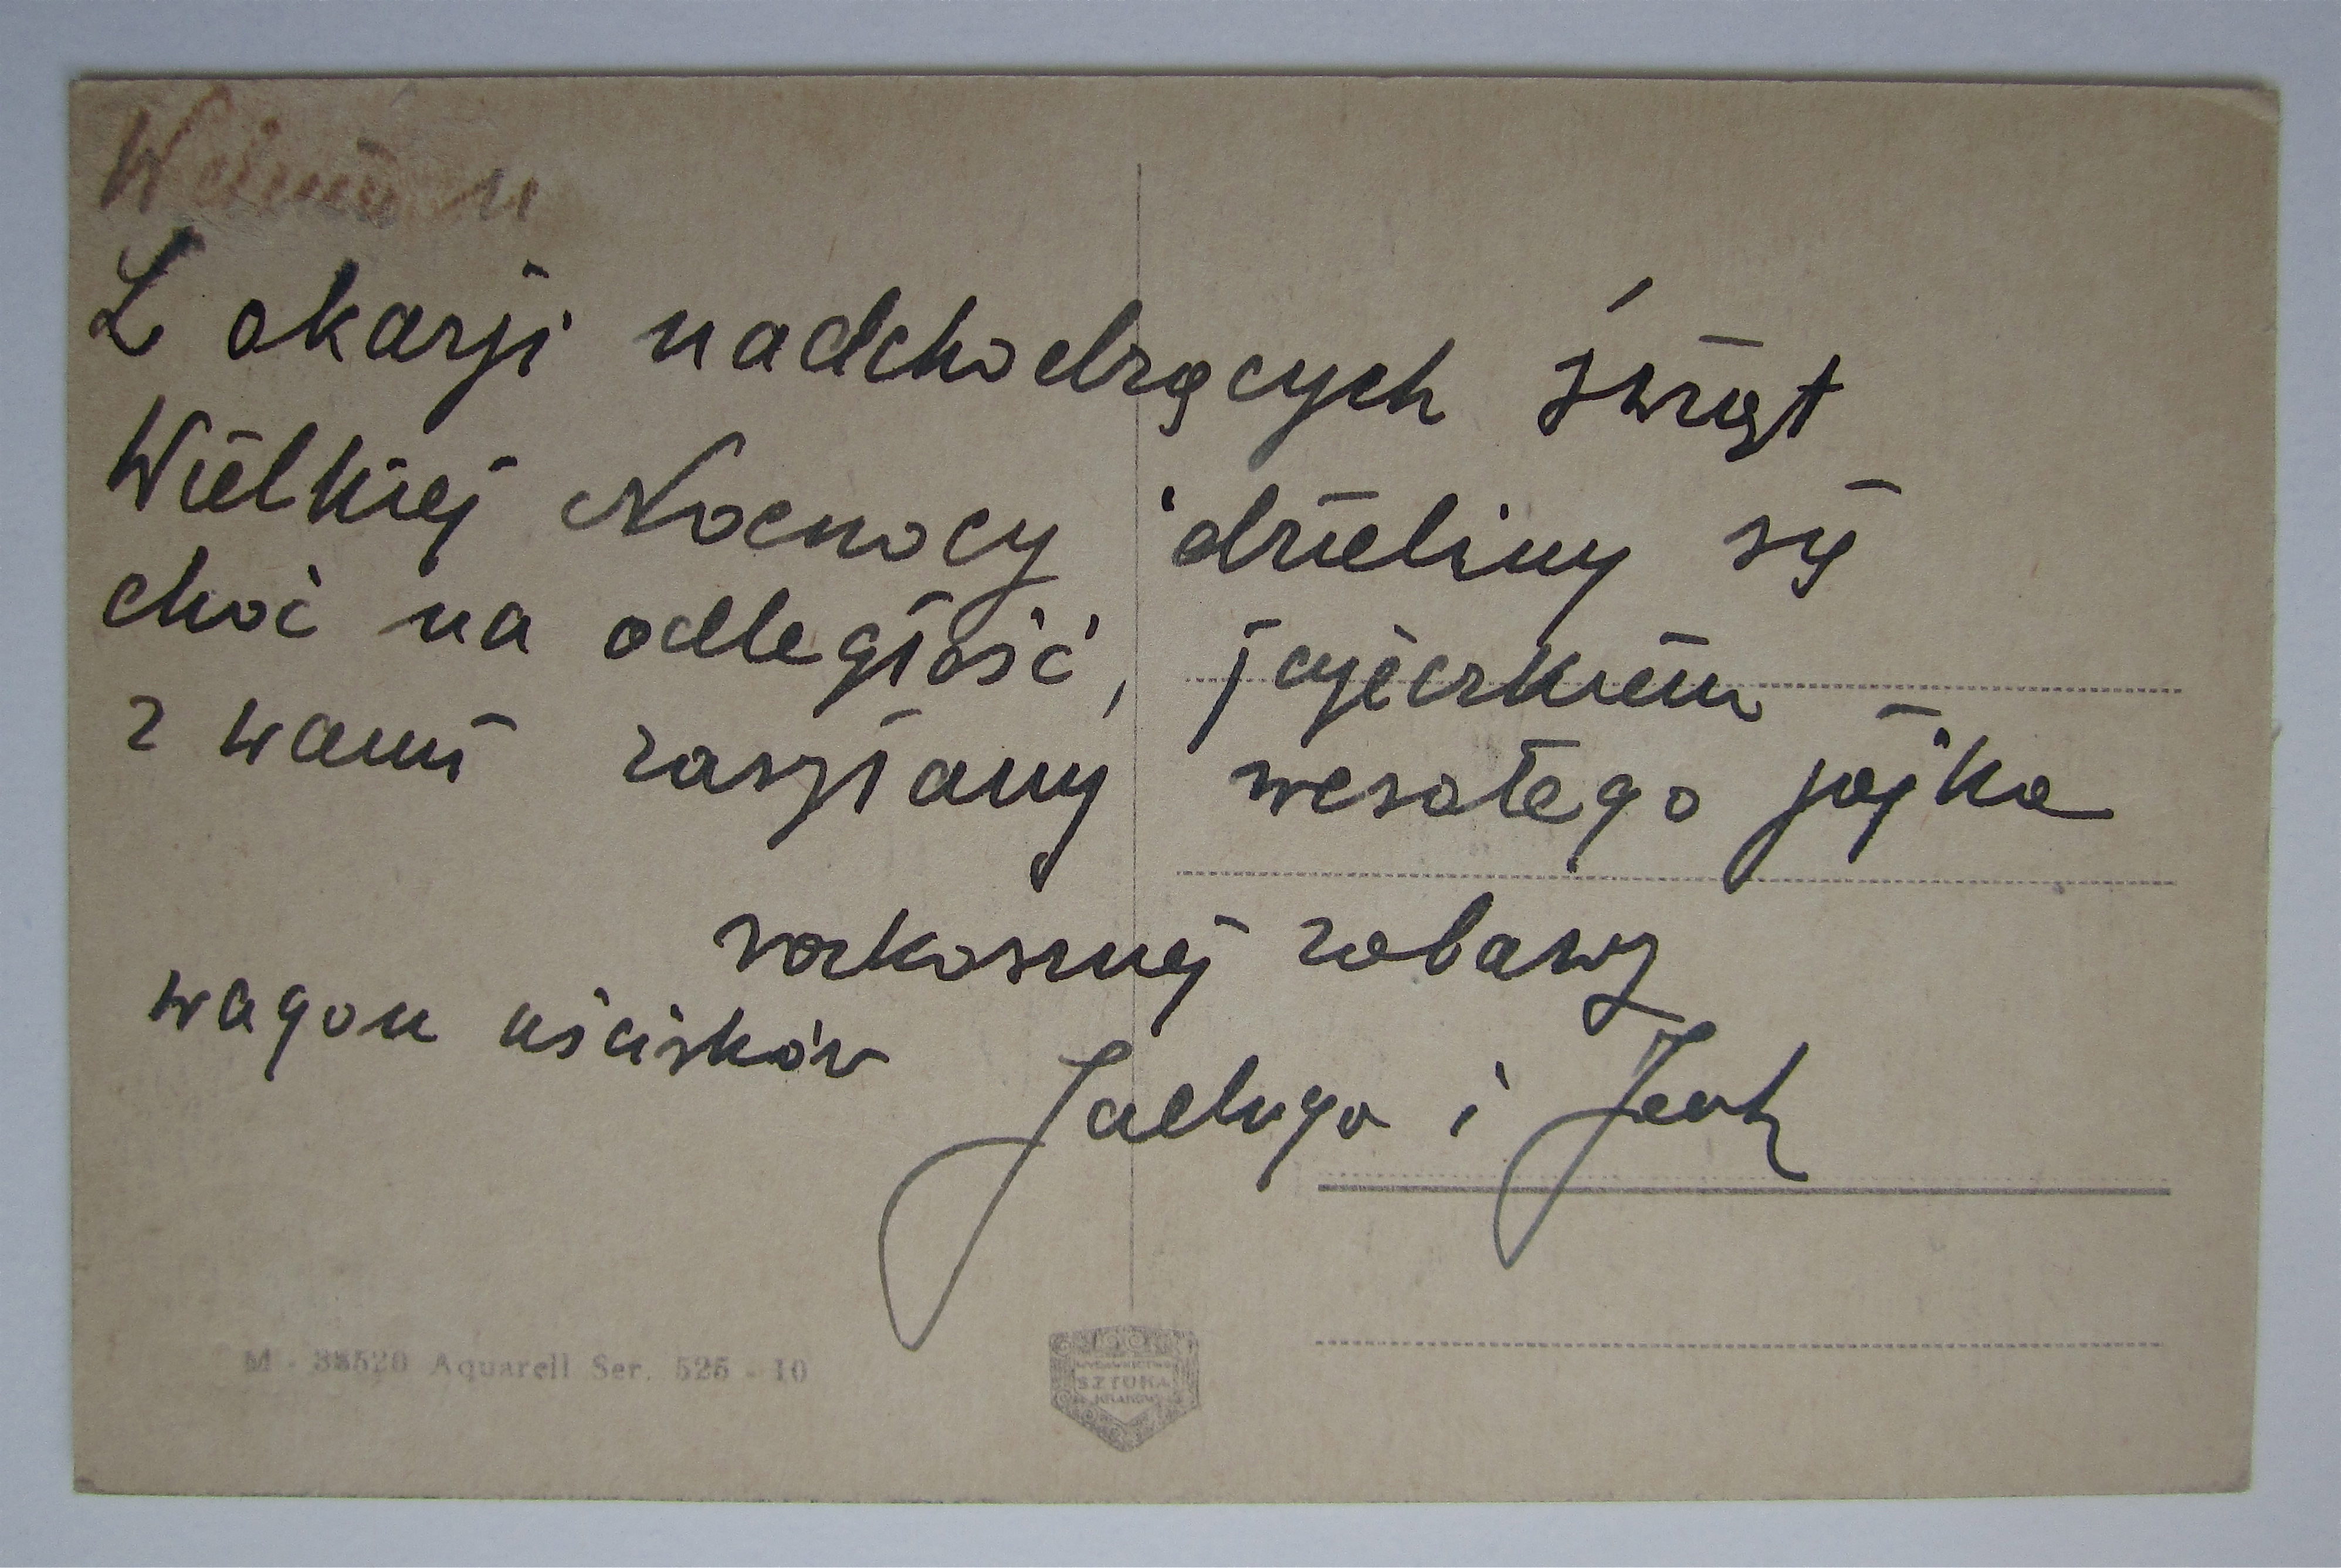 Z okazji nadchodzących świąt
Wielkiej Nocnocy dzielimy się
choć na odległość, jajeczkiem
z wami zasyłamy wesołego jajka
rozkosznej zabawy
wagon uścisków
Jadwiga i
M - 38520 Aquarell Ser. 525 - 10
WYDAWNICTWO
SZTUKA
KRAKÓW